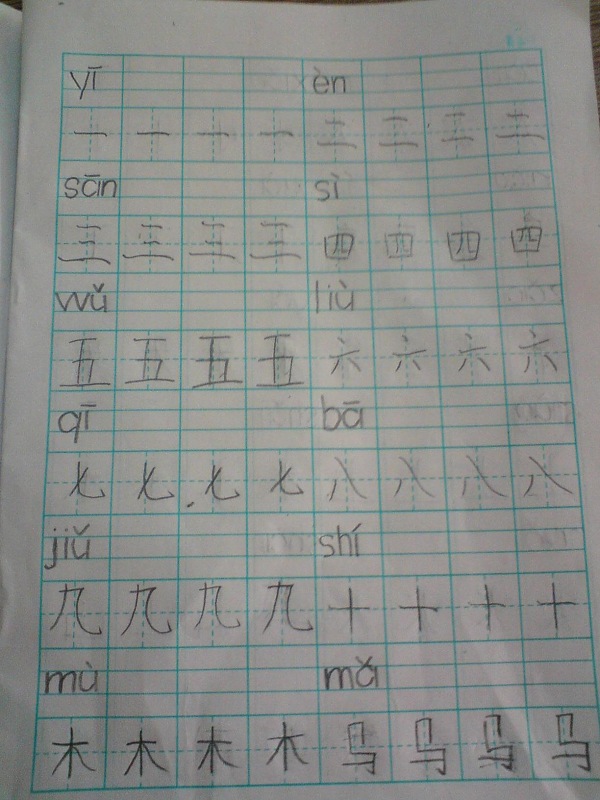 yī èn
一 一 一 一 二 二 二 二
sān sì
三 三 三 三 四 四 四 四
wǔ liù
五 五 五 五 六 六 六 六
qī bā
七 七 七 七 八 八 八 八
jiǔ shí
九 九 九 九 十 十 十 十
mù mǎ
木 木 木 木 马 马 马 马